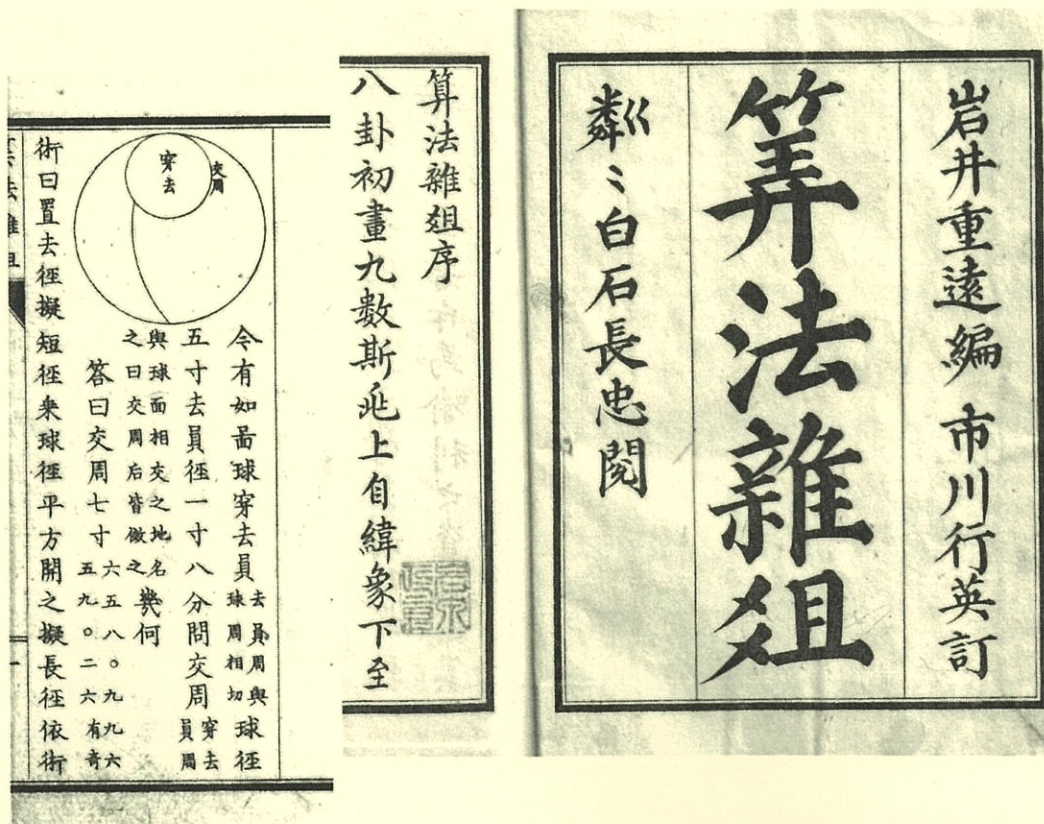 岩井重遠編 市川行英訂
筭法雜爼
粼〻白石長忠閱
算法雜爼序
八卦初畫九數斯兆上自緯象下至
穿去
交周
今有如啚球穿去員去員周與球周相切球徑
五寸去員徑一寸八分問交周穿去員周
與球面相交之地名之曰交周后皆倣之幾何
答曰交周七寸六五八〇九九六五九〇二六有奇
術曰置去徑擬短徑乗球徑平方開之擬長徑依術